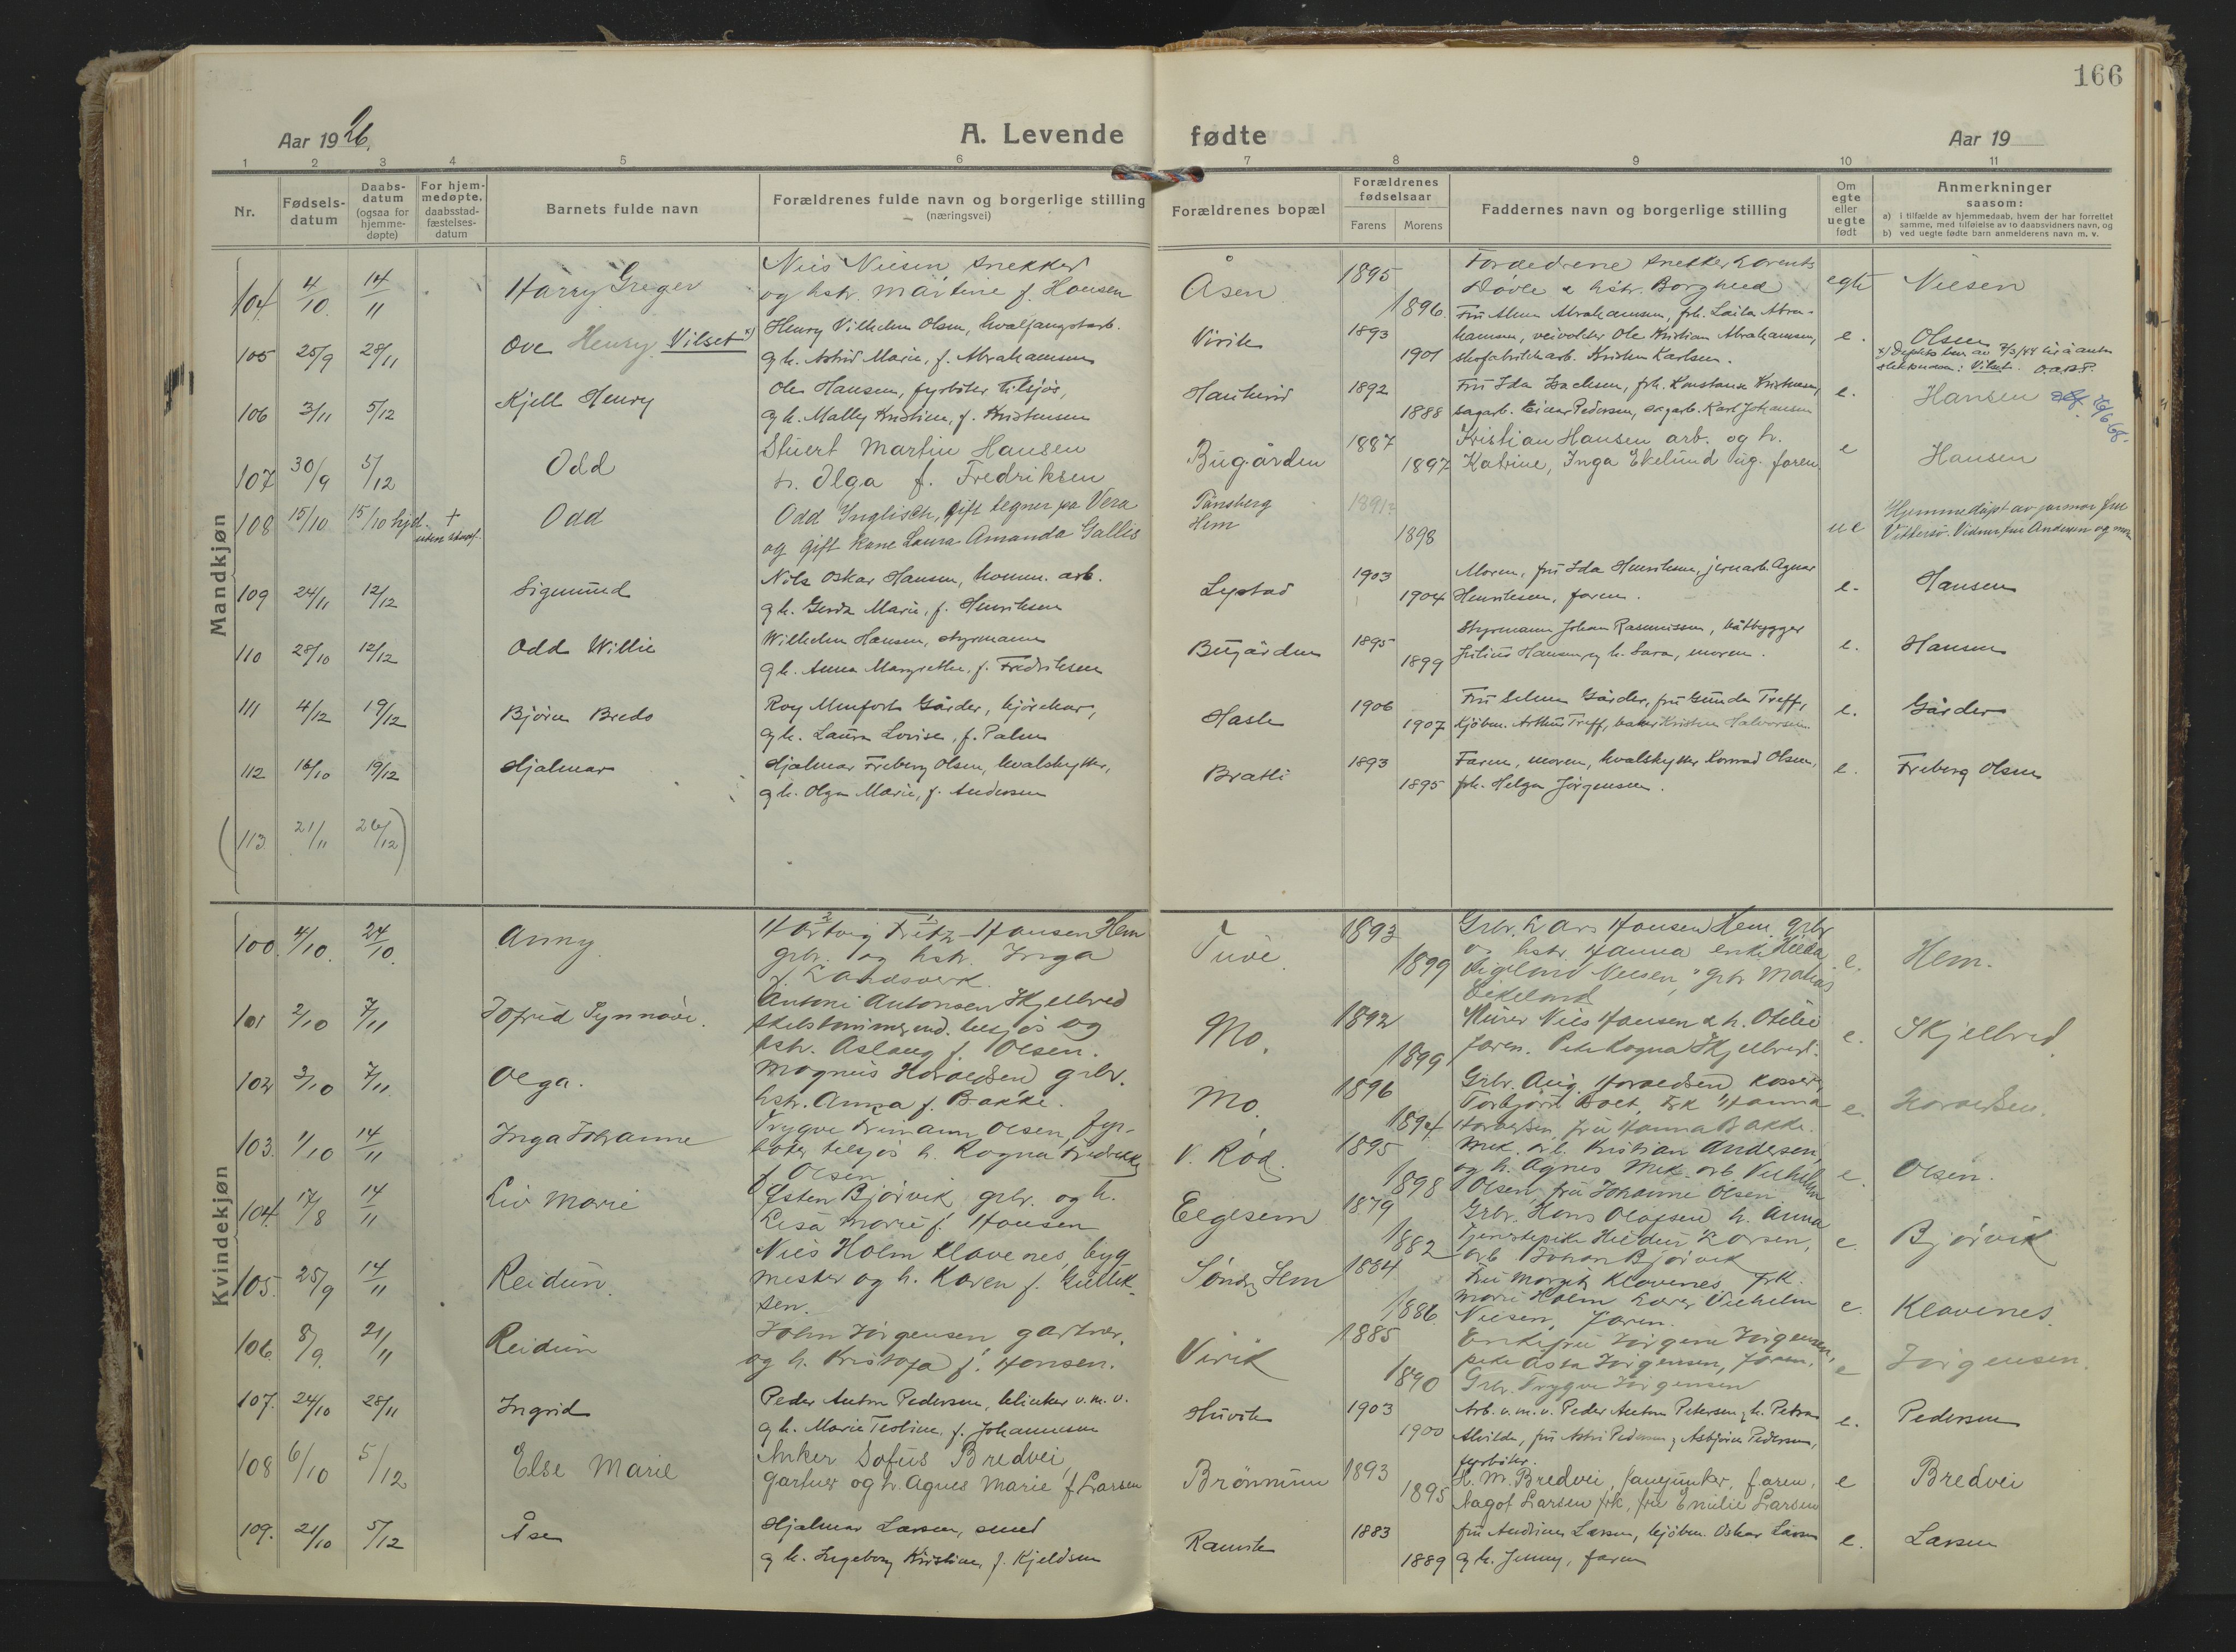 166
Aar 1926.
A. Levende fødte
Aar 19
1 2 3 4 5 6 7 8 9 10 11
Nr.
Fødsels-
datum
Daabs-
datum
(ogsaa for
hjemme-
døpte)
For hjem-
medøpte.
daabsstad-
fæstelses-
datum
Barnets fulde navn
Forældrenes fulde navn og borgerlige stilling
(næringsvei)
Forældrenes bopæl
Forældrenes
fødselsaar
Farens Morens
Faddernes navn og borgerlige stilling
Om
egte
eller
uegte
født
Anmerkninger
saasom:
a) i tilfælde av hjemmedaab, hvem der har forrettet
samme, med tilføielse av to daabsvidners navn, og
b) ved uegte fødte barn anmelderens navn m. v.
Mandkjøn
104. 4/10. 14/11 Harry Greger
Nils Nilsen snekker
og hstr. Martine f. Hansen
Åsen 1895 1896.
Forældrene snekker Lorents
Døvle & hstr. Borghild
egte Nilsen
105 25/9 28/11 Ove Henry Vilset x)
Henry Vilhelm Olsen, hvalfangstarb.
og h. Astrid Marie, f. Abrahamsen
Virik 1893 1901
Fru Alma Abrahamsen, frk. Laila Abra-
hamsen, veivokter Ole Kristian Abrahamsen,
skofabrikkarb. Kristen Karlsen.
e. Olsen
106 3/11 5/12 Kjell Henry
Ole Hansen, fyrbøter tilsjøs,
og h. Mally Kristine, f. Kristensen
Haukerød 1892 1888
Fru Ida Isachsen, frk. Konstanse Kristensen,
sagarb. Einar Pedersen, sagarb. Karl Johansen
e. Hansen 26/6 68.
107 30/9 5/12 Odd
Stuert Martin Hansen
h. Olga f. Fredriksen
Bugården 1887 1897
Kristian Hansen arb. og h.
Katrine, Inga Ekelund ug. faren
e Hansen
108 15/10 15/10 hjd. + Odd
Odd Inglisch, gift tegner på Vera
og gift kone Laura Amanda Gallis
Tønsberg
Hem
1898
ue
Hjemmedøpt av jormor fru
109 24/11 12/12 Sigmund
Nils Oskar Hansen, komm. arb.
og h. Gerda Marie, f. Henriksen
Lystad 1903 1904
Moren, fru Ida Henriksen, jernarb. Agnar
Henriksen, faren.
e. Hansen
110 28/10 12/12 Odd Willie
Wilhelm Hansen, styrmann
og h. Anna Margrethe, f. Fredriksen
Bugården 1895 1899
Styrmann Johan Rasmussen, båtbygger
Julius Hansen og h. Sara, moren.
e. Hansen
111 4/12 19/12 Bjørn Bredo
Roy Monfort Gårder, kjørekar,
og h. Laura Lovise, f. Palm
Hasle 1906 1907
Fru Selma Gårder, fru Gunda Treff,
kjøbm. Arthur Treff, baker Kristen Halvorsen.
e. Gårder
112 16/10 19/12 Hjalmar
Hjalmar Freberg Olsen, hvalskytter,
og h. Olga Marie, f. Andersen
Bratli 1893 1895
Faren, moren, hvalskytter Konrad Olsen,
frk. Helga Jørgensen.
e. Freberg Olsen
(113 21/11 26/12)
Kvindekjøn
100. 4/10. 24/10. Anny.
Hartvig Fritz Hansen Hem
grbr. og hstr. Inga
f. Landsverk.
Tuve. 1893 1899
Grbr. Lars Hansen Hem, grbr
og hstr. Hanna enke Hilda
Nilsen, grbr Mathias
Eikeland
e. Hem.
101 2/10 7/11 Jofrid Synnøve.
Antoni Antonsen Skjellved
tilsjøs og
hstr. Aslaug f. Olsen.
Mo. 1892 1899
Murer Nils Hansen & h. Otilie
faren. Pike Ragna Skjellvred.
e. Skjelbred
102 3/10 7/11. Olga.
Magnus Haraldsen grbr.
hstr. Anna f. Bakke.
Mo. 1896 1894
Grbr. Aug. Haraldsen,
Torbjørn Frk Hanna
Haraldsen, fru Hanna Bakke.
e. Haraldsen.
103. 1/10 14/11 Inga Johanne
Trygve Olsen, fyr-
bøter tilsjøs h. Ragna Fredrikke
f. Olsen
v. Rød. 1895 1898
Mek. arb. Kristian Andersen,
og h. Agnes Mek. arb Vilhelm
Olsen, fru Johanne Olsen.
e. Olsen.
104. 17/8 14/11 Liv Marie
Østen Bjørvik grbr. og h.
Lisa Marie f. Hansen
Elgesem 1879 1882
Grbr. Hans Olafsen h. Anna
Tjenestepike Larsen,
arb Johan Bjørvik
e. Bjørvik
105. 25/9 14/11 Reidun.
Nils Holm Klavenes, byg
mester og h. Karen f. Gullik-
sen.
Søndr Hem 1884 1886.
Fru Margit Klavenes, frk.
Marie Holm Lærer Vilhelm
Nilsen, faren.
e. Klavenes.
106. 8/9. 21/11 Reidun
John Jørgensen gartner,
og h. Kristofa f. Hansen.
Virik 1885 1890
Enkefru Jørgine Jørgensen,
pike Asta Jørgensen, faren,
Grbr. Trygve Jørgensen
e Jørgensen.
107. 24/10 28/11 Ingrid
Peder Anton Pedersen, klinker v.m.v.
og h. Marie Teoline, f. Johannesen
Huvik 1903 1900
Arb. v.m.v. Peder Anton Petersen og h. Petra
Alvilde, fru Astri Pedersen, Asbjørn Pedersen,
fyrbøter.
e. Pedersen
108 6/10 5/12 Else Marie
Anker Sofus Bredvei,
gartner og h. Agnes Marie f. Larsen
Brønnum 1893 1895
H. M. Bredvei, faren,
Aagot Larsen frk, fru Emilie Larsen
e Bredvei
109. 21/10 5/12 Åse
Hjalmar Larsen, smed
og h. Ingeborg Kristine, f. Kjeldsen
Ranvik 1883 1889
fru Andrine Larsen, kjøbm. Oskar Larsen
og h. Jenny, faren
e. Larsen